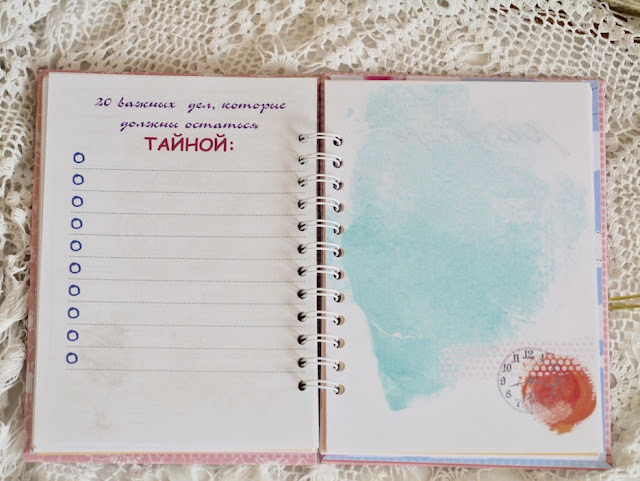 20 важных дел, которые
должны остаться
ТАЙНОЙ:
10 11 12
9
8